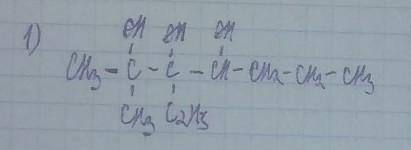 1)
OH OH OH
CH3 - C - C - CH - CH2 - CH2 - CH3
CH3 C2H5